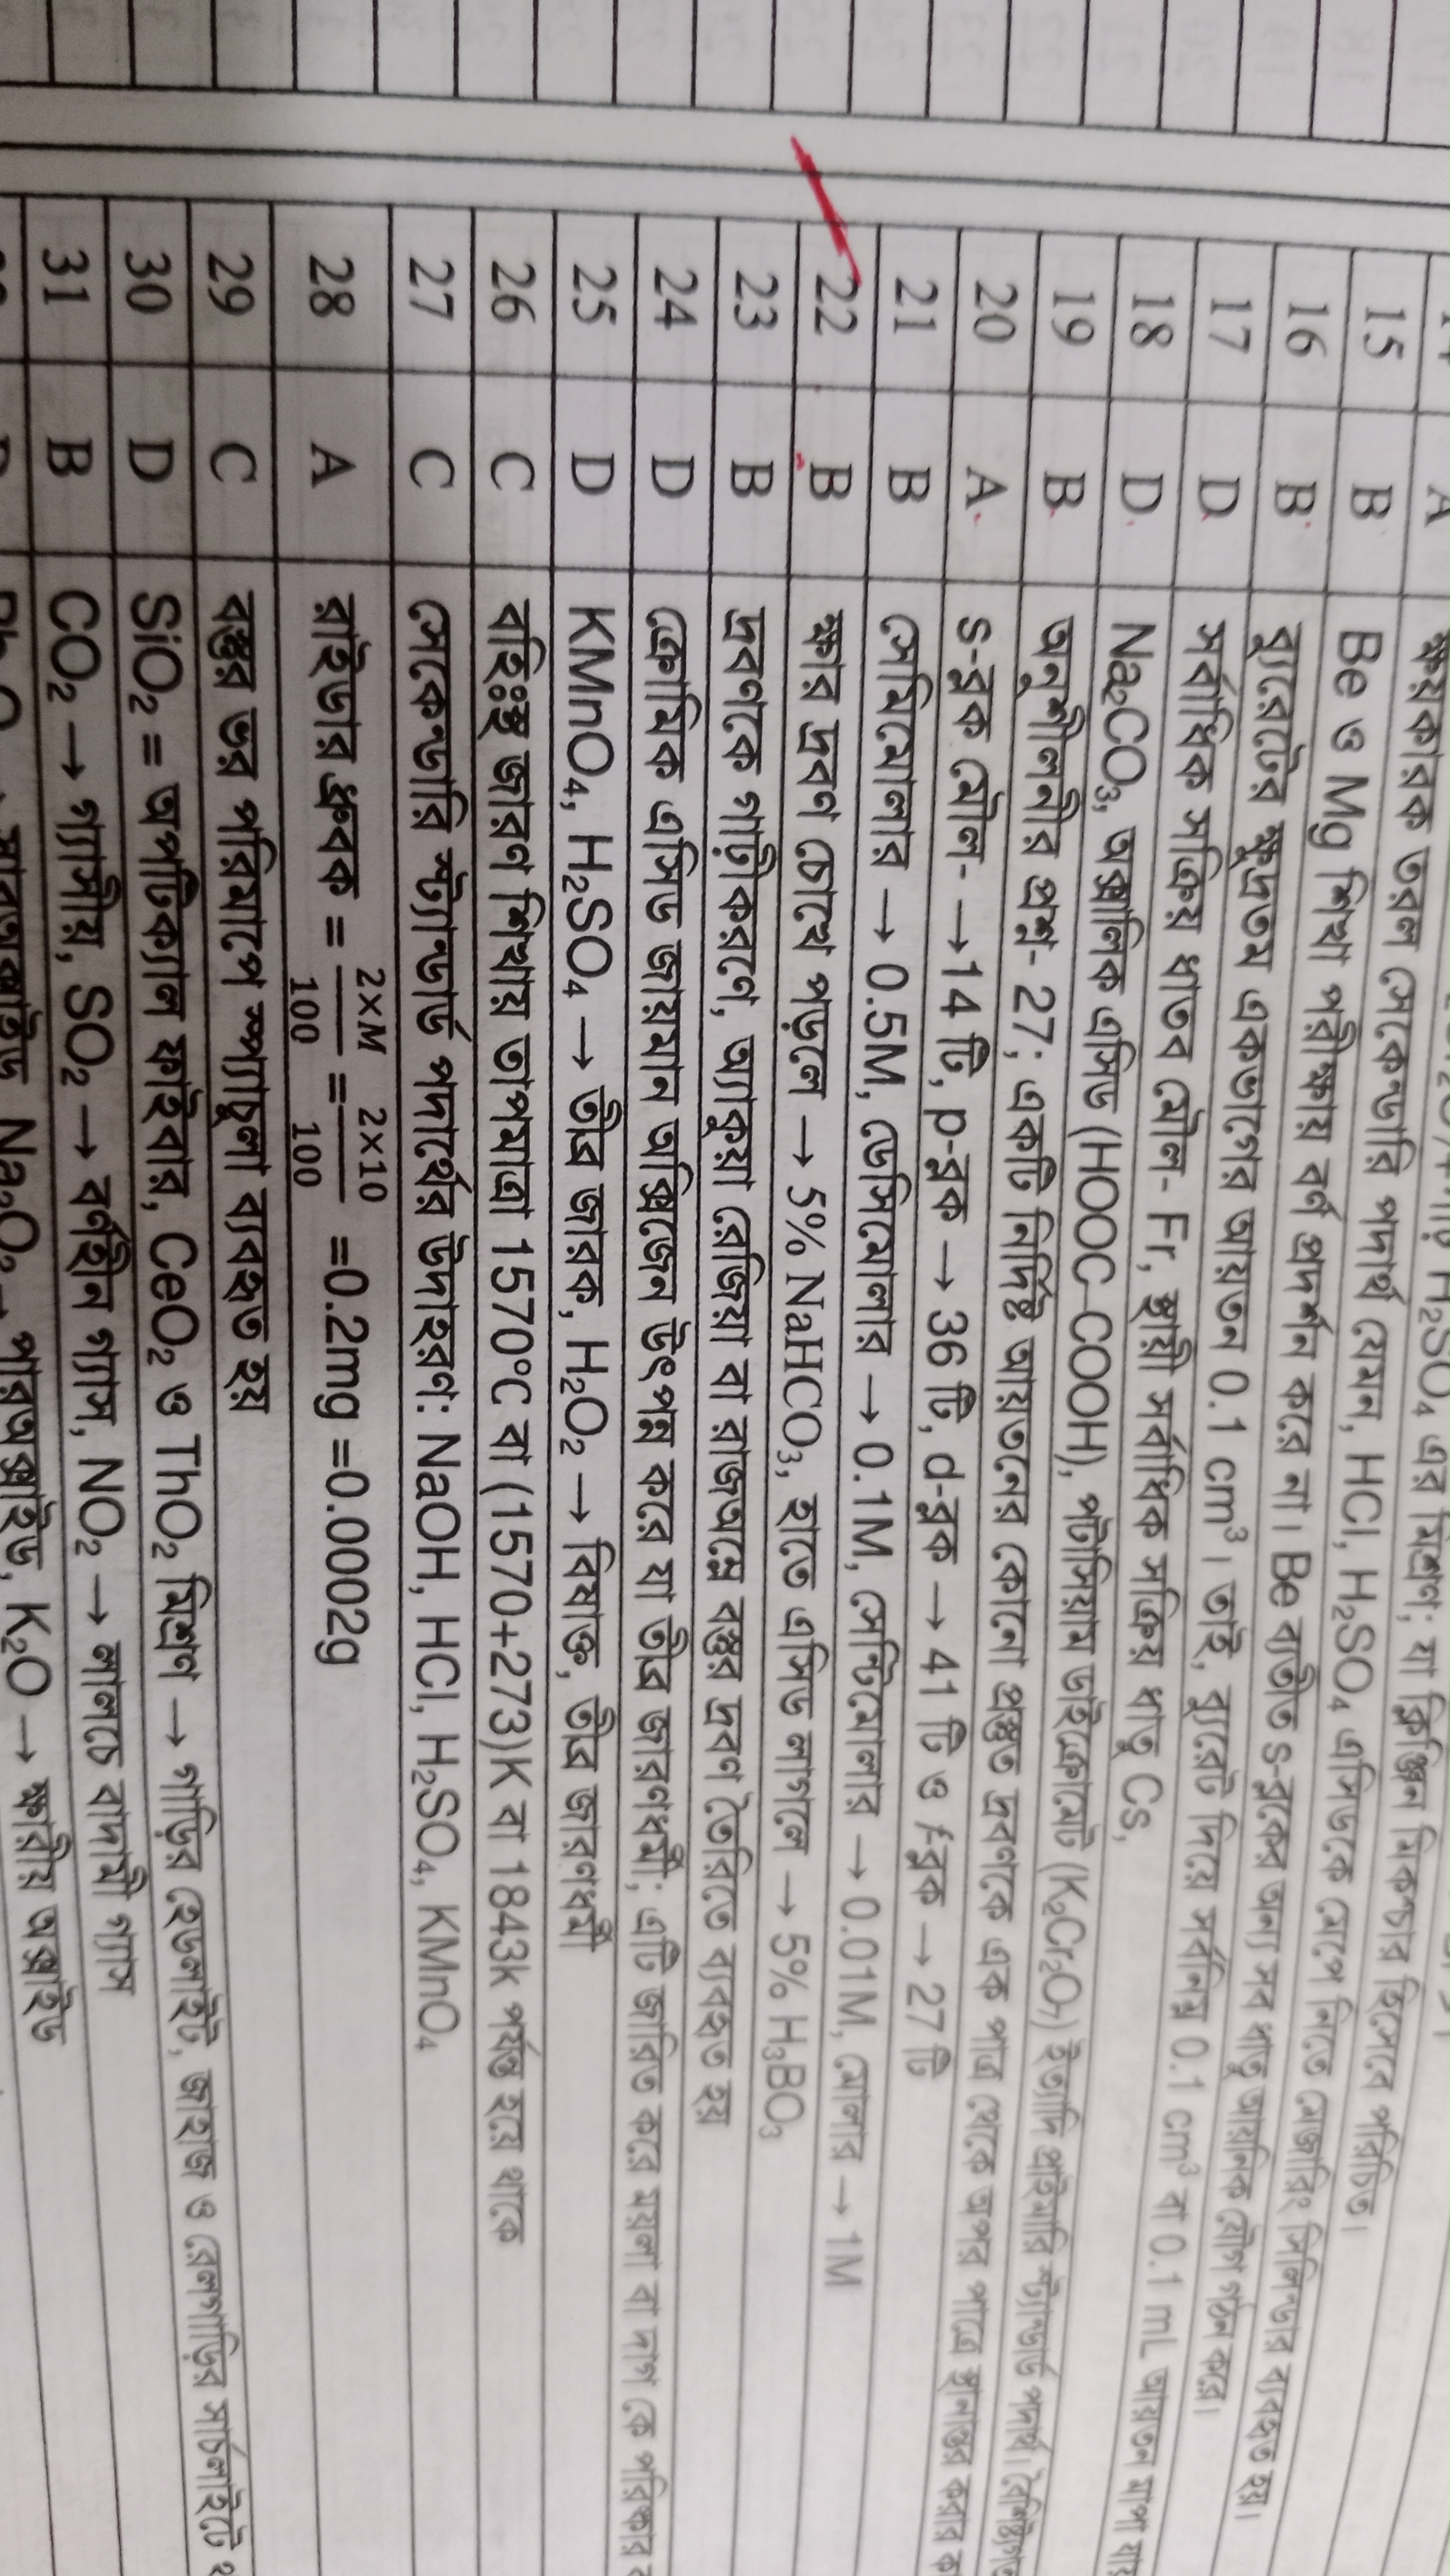 A ক্ষয়কারক তরল H₂SO₄ এর মিশ্রণ; যা ক্লিঞ্জিন মিকশ্চার হিসেবে পরিচিত।
15 B সেকেন্ডারি পদার্থ যেমন, HCl, H₂SO₄ এসিডকে মেপে নিতে মেজারিং সিলিন্ডার ব্যবহৃত হয়।
16 B Be ও Mg শিখা পরীক্ষায় বর্ণ প্রদর্শন করে না। Be ব্যতীত s-ব্লকের অন্য সব ধাতু আয়নিক যৌগ গঠন করে।
17 D ব্যুরেটের ক্ষুদ্রতম একভাগের আয়তন 0.1 cm³। তাই, ব্যুরেট দিয়ে সর্বনিম্ন 0.1 cm³ বা 0.1 mL আয়তন মাপা যায়
18 D সর্বাধিক সক্রিয় ধাতব মৌল- Fr, স্থায়ী সর্বাধিক সক্রিয় ধাতু Cs,
19 B Na₂CO₃, অক্সালিক এসিড (HOOC–COOH), পটাসিয়াম ডাইক্রোমেট (K₂Cr₂O₇) ইত্যাদি প্রাইমারি স্ট্যান্ডার্ড পদার্থ।
20 A অনুশীলনীর প্রশ্ন- 27; একটি নির্দিষ্ট আয়তনের কোনো প্রস্তুত দ্রবণকে এক পাত্র থেকে অপর পাত্রে স্থানান্তর করার
21 B s-ব্লক মৌল- →14 টি, p-ব্লক → 36 টি, d-ব্লক → 41 টি ও f-ব্লক → 27 টি
22 B সেমিমোলার → 0.5M, ডেসিমোলার → 0.1M, সেন্টিমোলার → 0.01M, মোলার → 1M
23 B ক্ষার দ্রবণ চোখে পড়লে → 5% NaHCO₃, হাতে এসিড লাগলে → 5% H₃BO₃
24 D দ্রবণকে পাঢ়ীকরণে, অ্যাকুয়া রেজিয়া বা রাজঅম্লে বস্তুর দ্রবণ তৈরিতে ব্যবহৃত হয়
25 D ক্রোমিক এসিড জায়মান অক্সিজেন উৎপন্ন করে যা তীব্র জারণধর্মী; এটি জারিত করে ময়লা বা দাগ কে পরিষ্কার
26 C KMnO₄, H₂SO₄ → তীব্র জারক, H₂O₂ → বিষাক্ত, তীব্র জারণধর্মী
27 C বহিঃস্থ জারণ শিখায় তাপমাত্রা 1570°C বা (1570+273)K বা 1843k পর্যন্ত হয়ে থাকে
সেকেন্ডারি স্ট্যান্ডার্ড পদার্থের উদাহরণ: NaOH, HCl, H₂SO₄, KMnO₄
28 A রাইডার ধ্রুবক = 2×M/100 = 2×10/100 =0.2mg =0.0002g
29 C বস্তুর ভর পরিমাপে স্প্যাচুলা ব্যবহৃত হয়
30 D SiO₂ = অপটিক্যাল ফাইবার, CeO₂ ও ThO₂ মিশ্রণ → গাড়ির হেডলাইট, জাহাজ ও রেলগাড়ির সার্চলাইটে
31 B CO₂ → গ্যাসীয়, SO₂ → বর্ণহীন গ্যাস, NO₂ → লালচে বাদামী গ্যাস
Na₂O₂ → পারঅক্সাইড, K₂O → ক্ষারীয় অক্সাইড